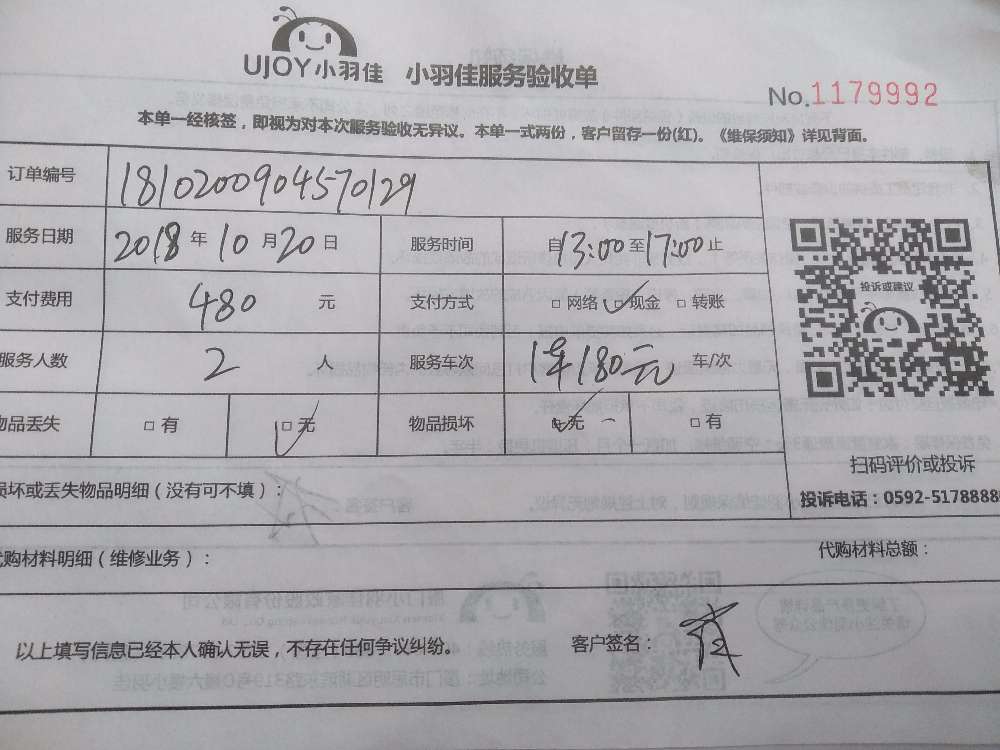 UJOY小羽佳 小羽佳服务验收单
No.1179992
本单一经核签，即视为对本次服务验收无异议。本单一式两份，客户留存一份(红)。《维保须知》详见背面。
订单编号 1810200904570129
服务日期 2018年10月20日 服务时间 自13:00至17:00止
支付费用 480元 支付方式 □网络 □现金 □转账
服务人数 2人 服务车次 1车180元 车/次
物品丢失 □有 □无 物品损坏 □无 □有
投诉或建议
扫码评价或投诉
投诉电话：0592-5178888
损坏或丢失物品明细（没有可不填）：
代购材料明细（维修业务）： 代购材料总额：
以上填写信息已经本人确认无误，不存在任何争议纠纷。 客户签名：